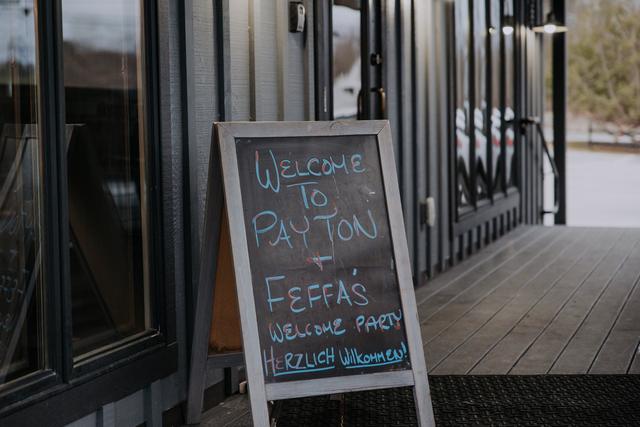 WELCOME
TO
PAYTON
+
FEFFA'S
WELCOME PARTY
HERZLICH WillKOMMEN!